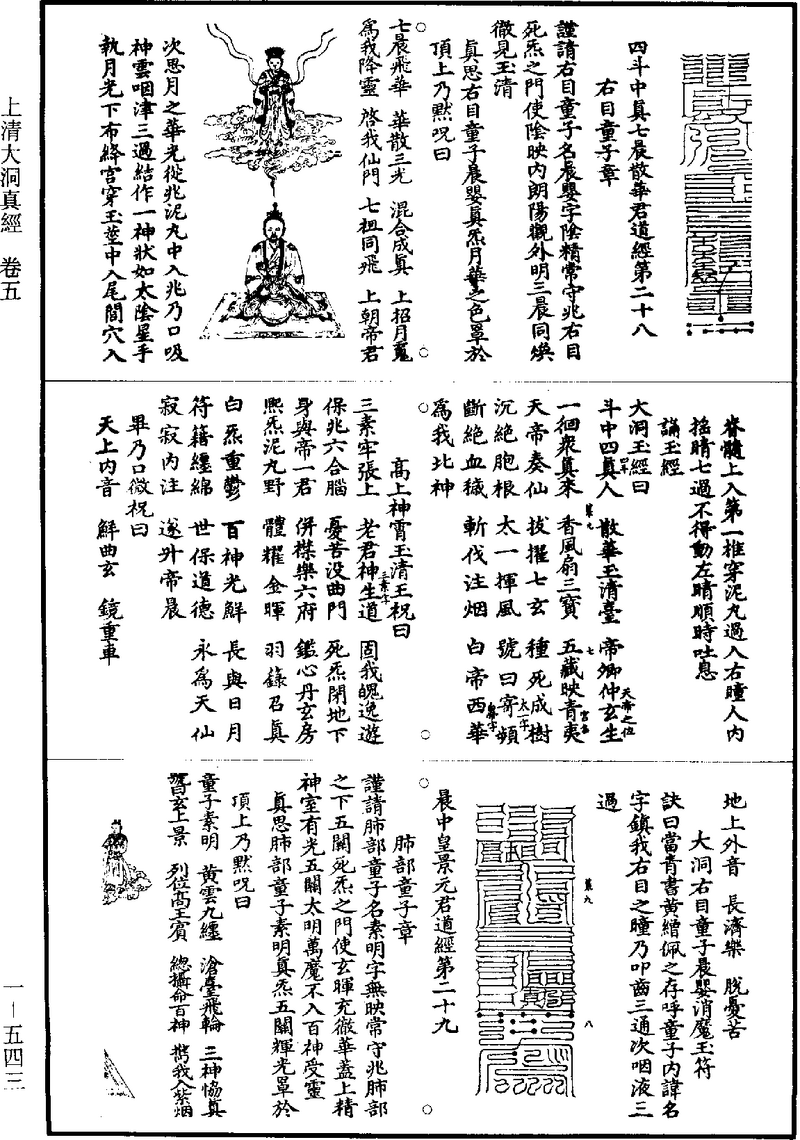 上清大洞真經　卷五
一－五四三
四斗中真七晨散華君道經第二十八
右目童子章
謹請右目童子名晨嬰字陰精常守兆右目
死炁之門使陰映內朗陽觀外明三晨同煥
徹見玉清
真思右目童子晨嬰真炁月華之色罩於
頂上乃默呪曰
七晨飛華　華散三光　混合成真　上招月魂
為我降靈　啓我仙門　七祖同飛　上朝帝君
次思月之華光從兆泥丸中入兆乃口吸
神雲咽津三過結作一神狀如太陰星手
執月光下布絳宮穿玉莖中入尾閭穴入
脊髓上入第一椎穿泥丸過入右瞳人內
搖睛七過不得動左睛順時吐息
誦玉經
大洞玉經曰
斗中四真人　散華玉清臺　帝卿仲玄生
天帝之位
一徊眾真來　香風扇三寶　五藏映青夷
天帝奏仙　拔擢七玄　種死成樹
沉絕胞根　太一揮風　號曰寄頻
太一字
斷絕血穢　斬伐注烟　白帝西華
為我北神
高上神霄玉清王祝曰
三素牢張上　老君神生道　固我魄逸遊
三素字
保兆六合腦　憂苦沒曲門　死炁閉地下
身與帝一君　併襟樂六府　鑑心丹玄房
熙炁泥丸野　體耀金暉　羽錄召真
白炁重鬱　百神光鮮　長與日月
符籍纏綿　世保道德　永為天仙
寂寂內注　遂升帝晨
畢乃口微祝曰
天上內音　鮮曲玄　鏡重車
地上外音　長濟樂　脫憂苦
大洞右目童子晨嬰消魔玉符
訣曰當青書黃繒佩之存呼童子內諱名
字鎮我右目之瞳乃叩齒三通次咽液三
過
晨中皇景元君道經第二十九
肺部童子章
謹請肺部童子名素明字無映常守兆肺部
之下五關死炁之門使玄暉充徹華蓋上精
神室有光五關太明萬魔不入百神受靈
真思肺部童子素明真炁五關輝光罩於
頂上乃默呪曰
童子素明　黃雲九纏　滄臺飛輪　三神恊真
翳玄上景　列位高王賓　總攝命百神　攜我入紫烟